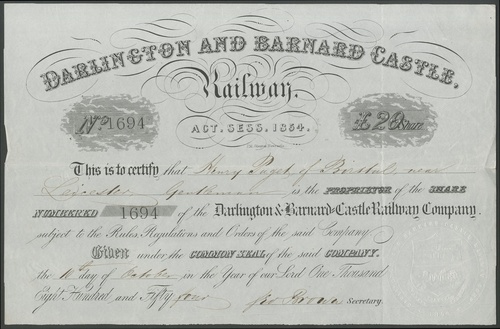 DARLINGTON AND BARNARD CASTLE,
Railway.
Nº 1694
ACT. SESS. 1854.
£20 Share
This is to certify that Henry Paget of Birstal, near
Leicester Gentleman is the PROPRIETOR of the SHARE
NUMBERED 1694 of the Darlington & Barnard-Castle Railway Company.
subject to the Rules, Regulations and Orders of the said Company.
Given under the COMMON SEAL of the said COMPANY.
the 10th day of October in the Year of our Lord One Thousand
Eight Hundred and Fifty four Secretary.